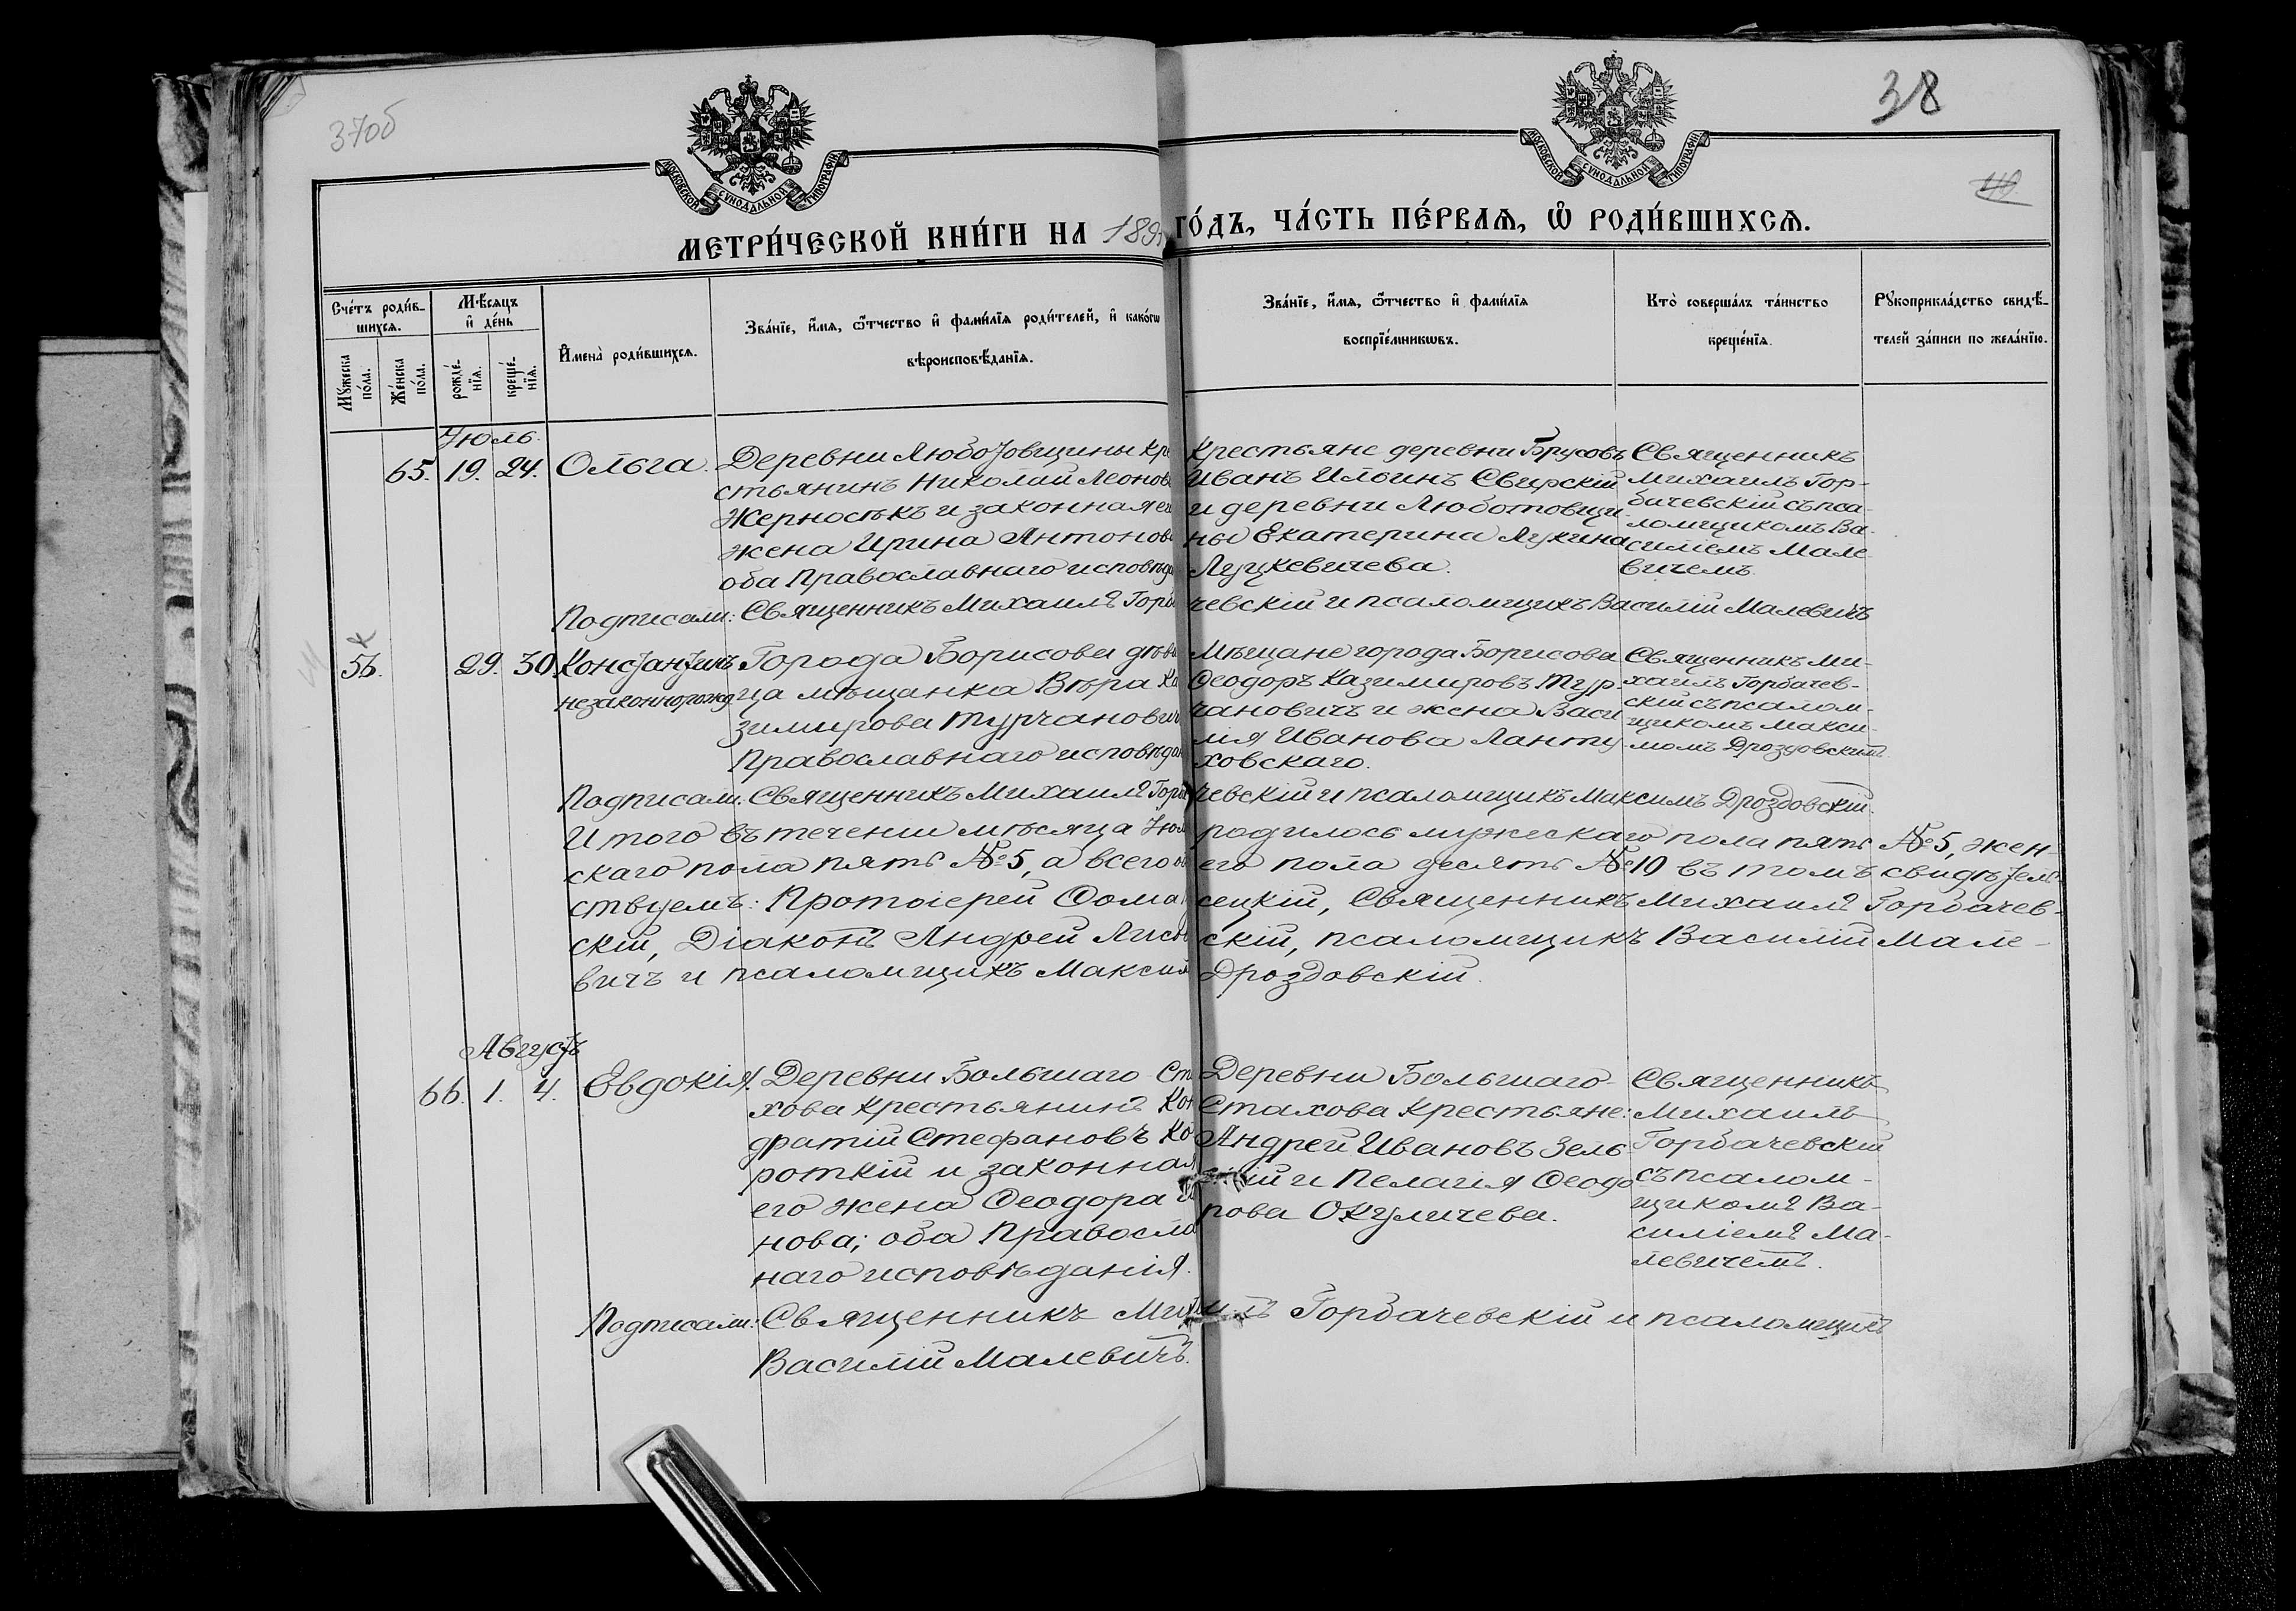 37об
38
МОСКОВСКОЙ СѴНОДАЛЬНОЙ ТИПОГРАФІИ
МОСКОВСКОЙ СѴНОДАЛЬНОЙ ТИПОГРАФІИ
МЕТРИ́ЧЕСКОЙ КНИ́ГИ НА 189
ГО́ДЪ, ЧА́СТЬ ПЕ́РВАѦ, Ѡ҆ РОДИ́ВШИХСѦ.
Сче́тъ роди́в-
шихсѧ.
Мꙋ́жеска по́ла.
Же́нска по́ла.
Мѣ́сѧцъ и҆ де́нь
рожде́-нїѧ.
креще́-нїѧ.
И҆мена̀ роди́вшихсѧ.
Зва́нїе, и҆́мѧ, ѻ҆́тчество и҆ фами́лїѧ роди́телей, и҆ како́гѡ
вѣроисповѣ́данїѧ.
Зва́нїе, и҆́мѧ, ѻ҆́тчество и҆ фами́лїѧ
воспрїе́мникѡвъ.
Кто̀ соверша́лъ та́инство
креще́нїѧ.
Рꙋкоприкла́дство свидѣ́-
телей за́писи по жела́нїю.
Іюль.
65. 19. 24. Ольга.
Деревни Любатовщины кре
стьянинъ Николай Леонов
Жерносѣкъ и законная ег
жена Ирина Антонов
оба Православнаго исповѣда
Крестьяне деревни Брусовъ
Иванъ Ильинъ Свирскій
и деревни Люботовщи-
ны Екатерина Лукина
Луцкевичева.
Священникъ
Михаилъ Гор-
бачевскій съ пса-
ломщикомъ Ва-
силіемъ Мале
вичемъ.
Подписали: Священникъ Михаилъ Горба
чевскій и псаломщикъ Василій Малевичъ
56. 29. 30 Константинъ
незаконнорожд
Города Борисова дѣви
ца мѣщанка Вѣра Ка
зимирова Турчанович
Православнаго исповѣдан
Мѣщане города Борисова
Ѳеодоръ Казимировъ Тур-
чановичъ и жена Васи
лія Иванова Ланту-
ховскаго.
Священникъ Ми-
хаилъ Горбачев-
скій съ псалом-
щикомъ Макси-
момъ Дроздовскимъ.
Подписали: Священникъ Михаилъ Горба
чевскій и псаломщикъ Максимъ Дроздовскій.
Итого въ теченіи мѣсяца Іюл
родилось мужескаго пола пять №5, жен-
скаго пола пять №5, а всего об
его пола десять №10 въ томъ свидѣтель
ствуемъ: Протоіерей Ѳома
сецкій, Священникъ Михаилъ Горбачев-
скій, Діаконъ Андрей Лисов
скій, псаломщикъ Василій Мале-
вичъ и псаломщикъ Максим
Дроздовскій.
Августъ
66. 1. 4. Евдокія.
Деревни Большаго Ста
хова крестьянинъ Кон
дратій Стефановъ Ко
роткій и законная
его жена Ѳеодора И
нова; оба Правосла
наго исповѣданія.
Деревни Большаго-
Стахова Крестьяне:
Андрей Ивановъ Зель-
скій и Пелагія Ѳеодо
рова Окуличева.
Священникъ
Михаилъ
Горбачевскій
съ псалом-
щикомъ Ва-
силіемъ Ма-
левичемъ.
Подписали: Священникъ Михаилъ Горбачевскій и псаломщикъ
Василій Малевичъ.